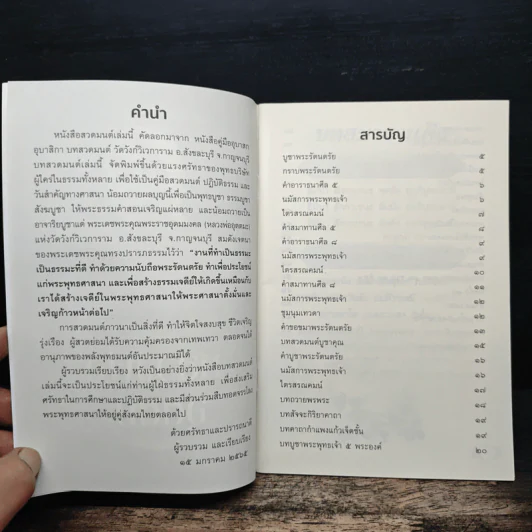 คำนำ
หนังสือสวดมนต์เล่มนี้ คัดลอกมาจาก หนังสือคู่มืออุบาสก
อุบาสิกา บทสวดมนต์ วัดวังก์วิเวการาม อ.สังขละบุรี จ.กาญจนบุรี
บทสวดมนต์เล่มนี้ จัดพิมพ์ขึ้นด้วยแรงศรัทธาของพุทธบริษัท
ผู้ใคร่ในธรรมทั้งหลาย เพื่อใช้เป็นคู่มือสวดมนต์ ปฏิบัติธรรม และ
วันสำคัญทางศาสนา น้อมถวายผลบุญนี้เพื่อเป็นพุทธบูชา ธรรมบูชา
สังฆบูชา ให้พระธรรมคำสอนเจริญแผ่หลาย และน้อมถวายเป็น
อาจาริยบูชาแด่ พระเดชพระคุณพระราชอุดมมงคล (หลวงพ่ออุตตมะ)
แห่งวัดวังก์วิเวการาม อ.สังขละบุรี จ.กาญจนบุรี สมดังเจตนา
ของพระเดชพระคุณทรงปรารภธรรมไว้ว่า "งานที่ทำเป็นธรรมะ
เป็นธรรมะที่ดี ทำด้วยความนับถือพระรัตนตรัย ทำเพื่อประโยชน์
แก่พระพุทธศาสนา และเพื่อสร้างธรรมเจดีย์ให้เกิดขึ้นเหมือนกับ
เราได้สร้างเจดีย์ในพระพุทธศาสนาให้พระศาสนาตั้งมั่นและ
เจริญก้าวหน้าต่อไป"
การสวดมนต์ภาวนาเป็นสิ่งที่ดี ทำให้จิตใจสงบสุข ชีวิตเจริญ
รุ่งเรือง ผู้สวดย่อมได้รับความคุ้มครองจากเทพเทวา ตลอดจนได้
อานุภาพของพลังพุทธมนต์อันประมาณมิได้
ผู้รวบรวมเรียบเรียง หวังเป็นอย่างยิ่งว่าหนังสือบทสวดมนต์
เล่มนี้จะเป็นประโยชน์แก่ท่านผู้ใฝ่ธรรมทั้งหลาย เพื่อส่งเสริม
ศรัทธาในการศึกษาและปฏิบัติธรรม และมีส่วนร่วมสืบทอดจรรโลง
พระพุทธศาสนาให้อยู่คู่สังคมไทยตลอดไป
ด้วยศรัทธาและปรารถนาดี
ผู้รวบรวม และเรียบเรียง
๑๕ มกราคม ๒๕๖๕
สารบัญ
บูชาพระรัตนตรัย ๕
กราบพระรัตนตรัย ๕
คำอาราธนาศีล ๕ ๖
นมัสการพระพุทธเจ้า ๖
ไตรสรณคมน์ ๗
คำสมาทานศีล ๕ ๘
คำอาราธนาศีล ๘ ๙
นมัสการพระพุทธเจ้า ๙
ไตรสรณคมน์ ๑๐
คำสมาทานศีล ๘ ๑๑
นมัสการพระพุทธเจ้า ๑๒
ชุมนุมเทวดา ๑๓
คำขอขมาพระรัตนตรัย
บทสวดมนต์บูชาคุณ ๑๕
คำบูชาพระรัตนตรัย ๑๖
นมัสการพระพุทธเจ้า ๑๖
ไตรสรณคมน์ ๑๗
บทถวายพรพระ ๑๘
บทสัจจะกิริยาคาถา ๑๙
บทคาถากำแพงแก้วเจ็ดชั้น ๑๙
บทบูชาพระพุทธเจ้า ๕ พระองค์ ๒๐